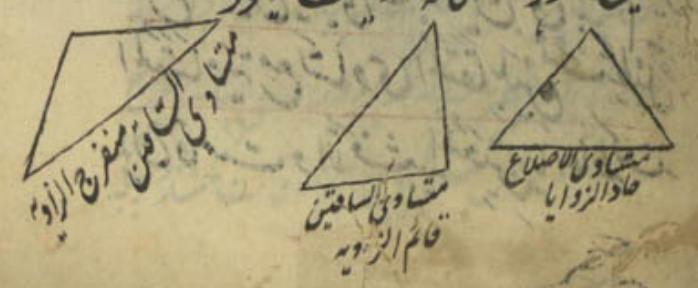 متساوی الاضلاع
حاد الزوایا
متساوی الساقین
قائم الزویه
متساوی الساقین منفرج الزاویه